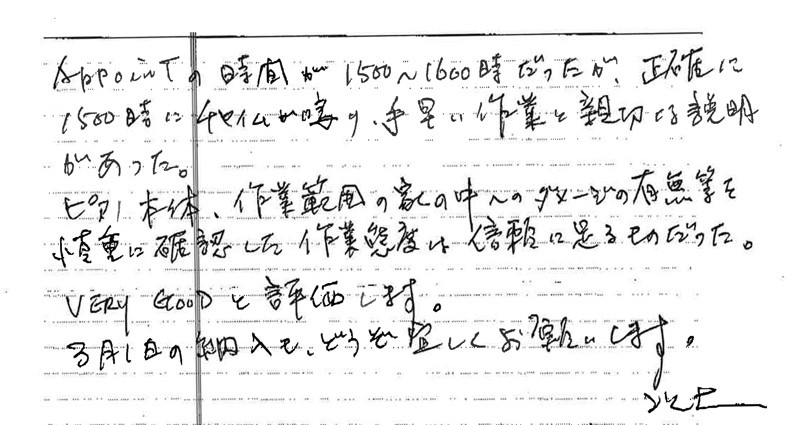 Appointの時間が1500～1600時だったが、正確に
1500時にチャイムが鳴り、手早い作業と親切な説明
があった。
ピアノ本体、作業範囲の家の中へのダメージの有無等を
慎重に確認した作業態度は信頼に足るものだった。
VERY GOODと評価します。
3月1日の納入も、どうぞ宜しくお願いします。
以上